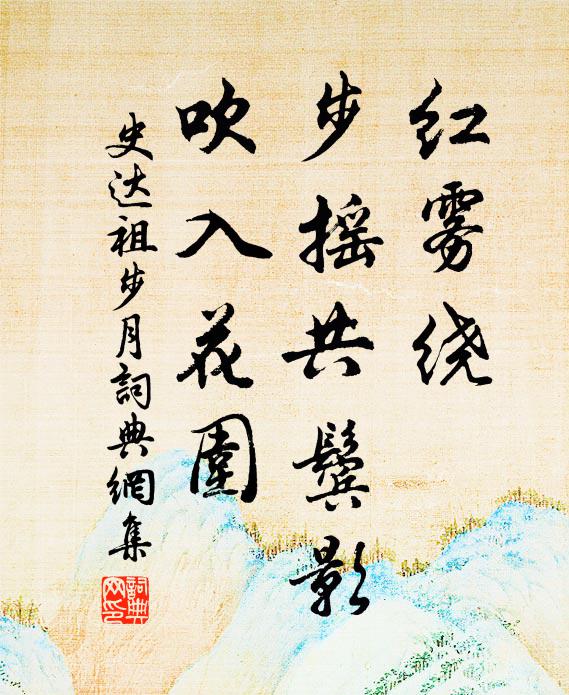 红雾绕
步摇共鬓影
吹入花围
史达祖步月詞典網集
詞典
网印